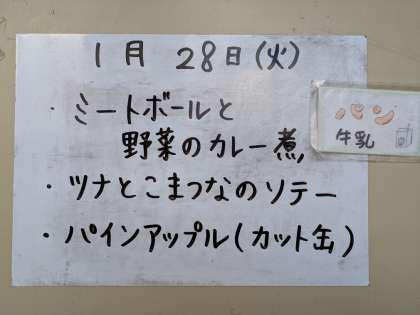 1月 28日(火)
・ミートボールと
野菜のカレー煮
・ツナとこまつなのソテー
・パインアップル(カット缶)
パン
牛乳